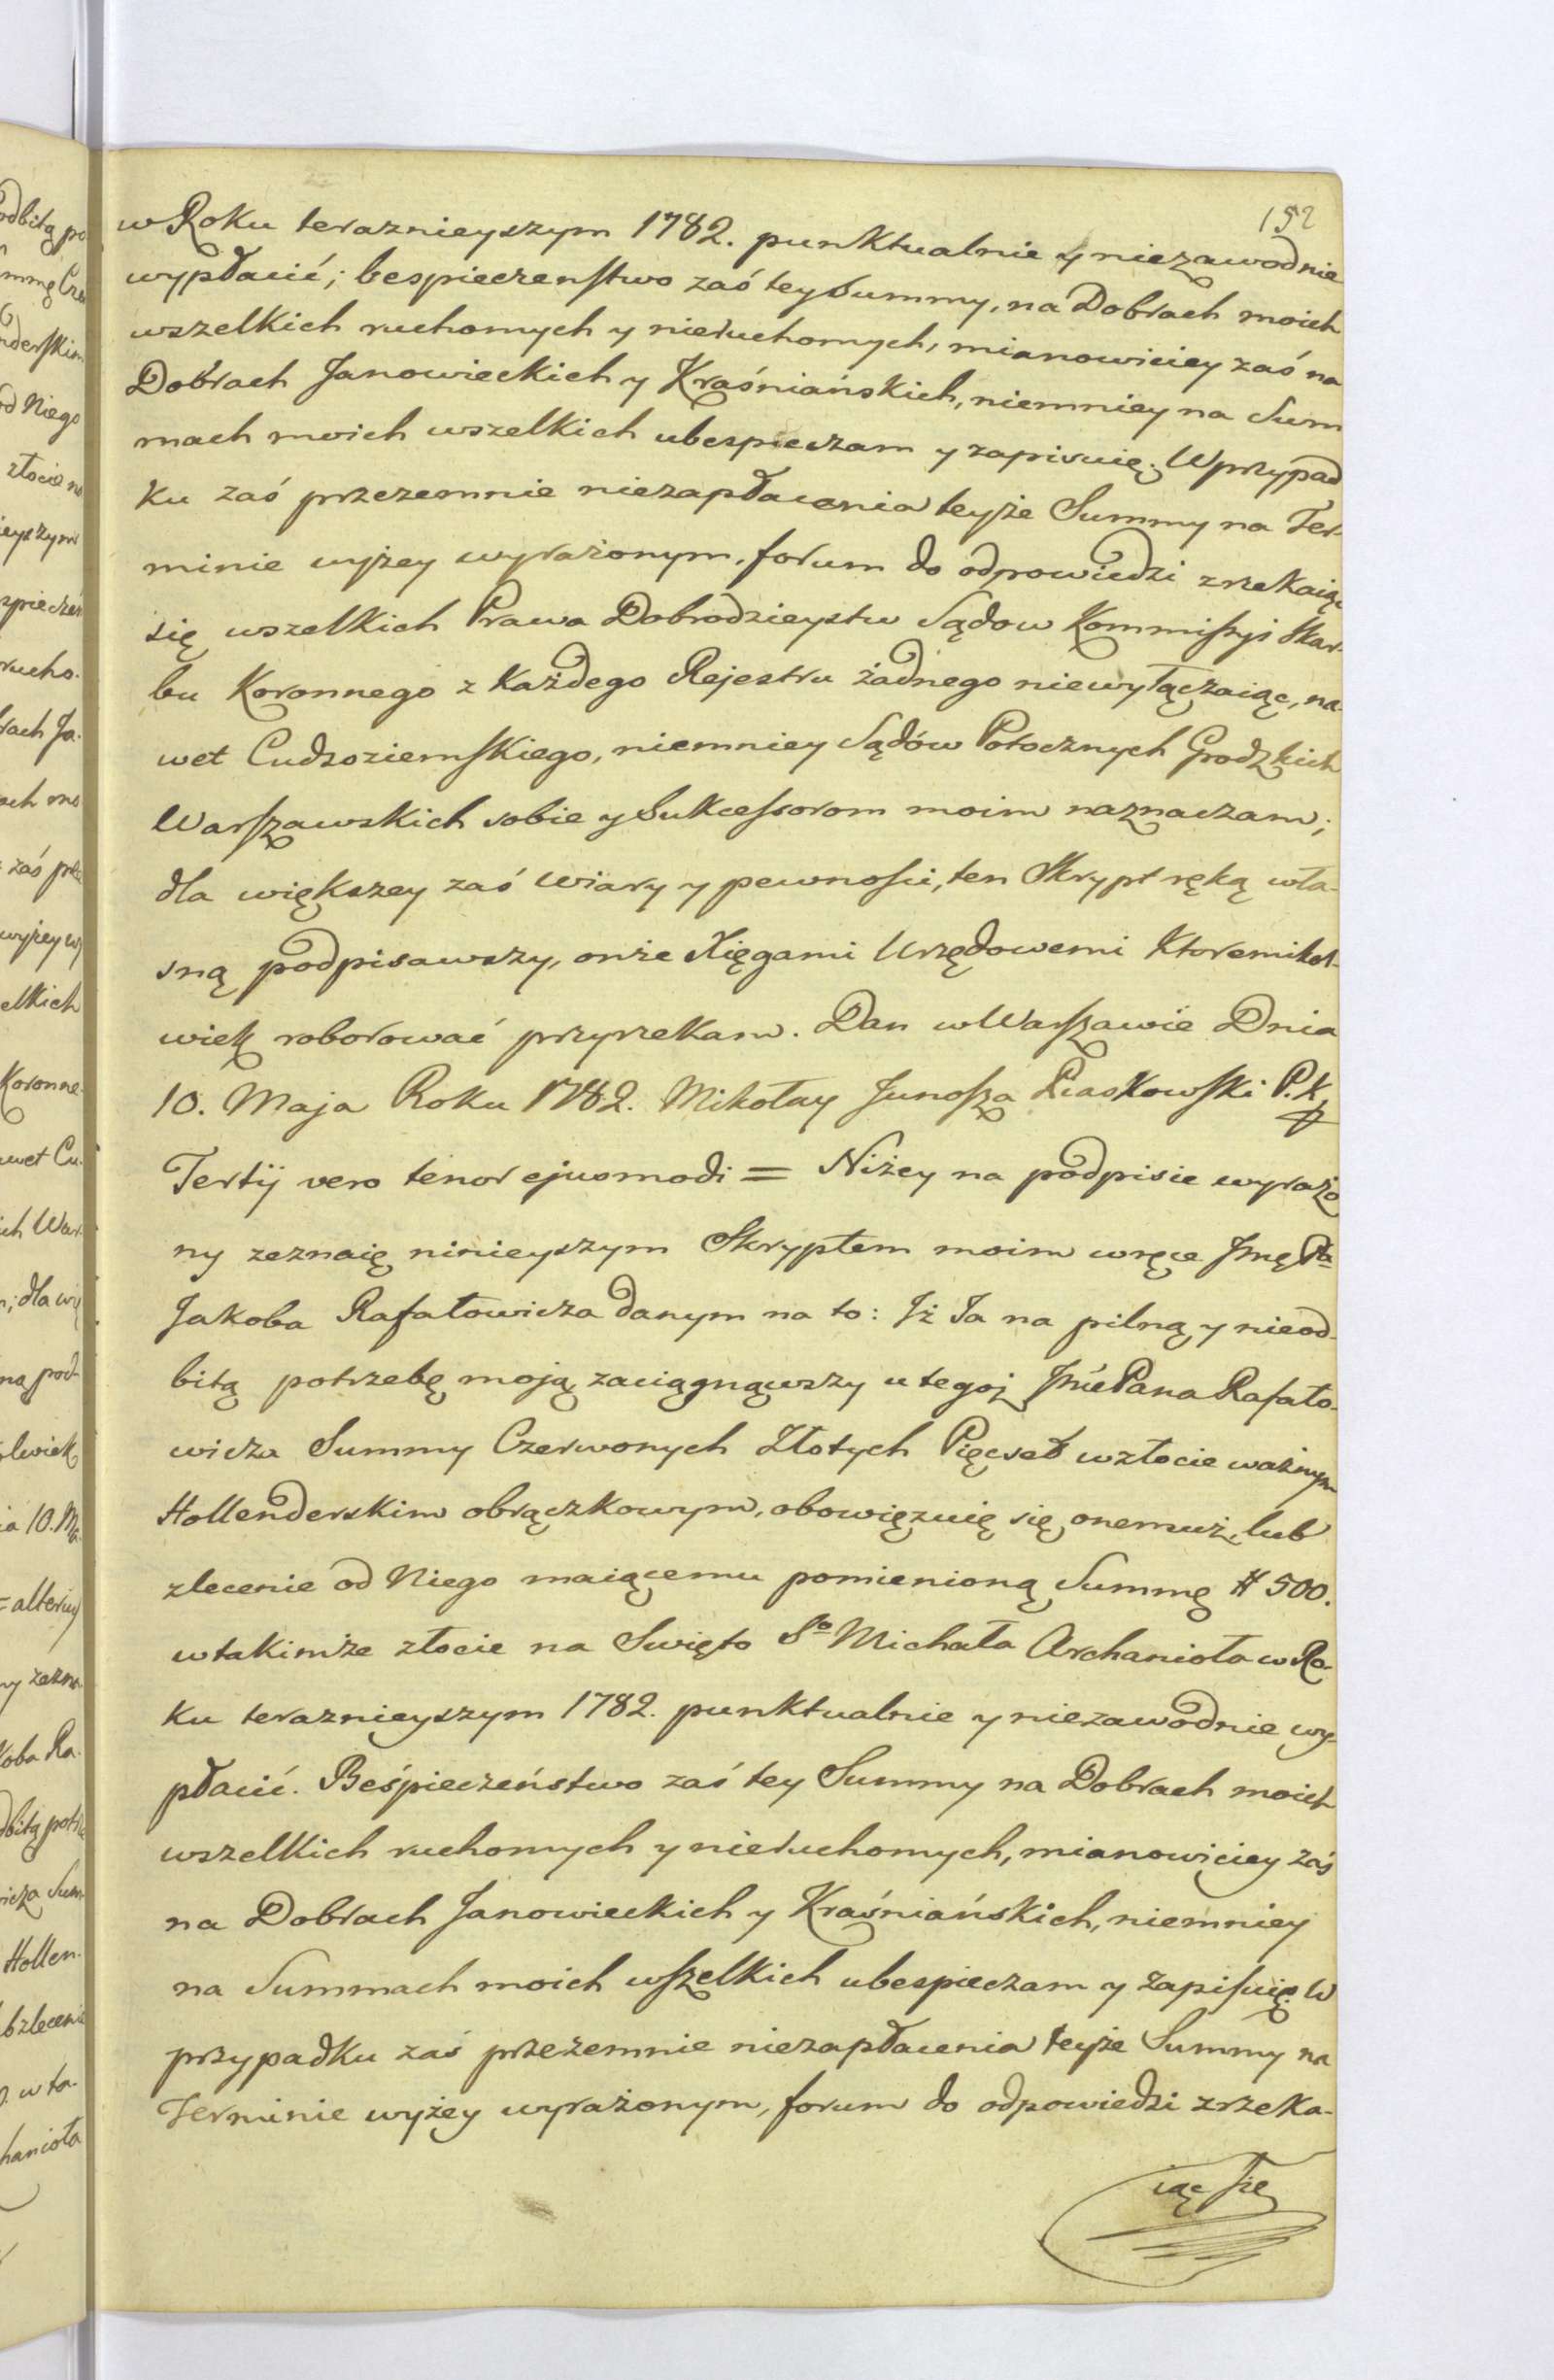 152
w Roku teraznieyszym 1782. punktualnie y niezawodnie
wypłacić; bespieczenstwo zaś tey Summy, na Dobrach moich
wszelkich ruchomych y nieruchomych, mianowiciey zaś na
Dobrach Janowieckich y Kraśniańskich, niemniey na Sum
mach moich wszelkich ubespieczam y zapisuię. W przypad
ku zaś przezemnie niezapłacenia teyże Summy na Ter-
minie wyżey wyrażonym, forum do odpowiedzi zrzekaiąc
się wszelkich Prawa Dobrodzieystw Sądow Kommissyi Skar-
bu Koronnego z każdego Rejestru żadnego niewyłączaiąc, na-
wet Cudzoziemskiego, niemniey Sądów Potocznych Grodzkich
Warszawskich sobie y Sukcessorom moim naznaczam;
dla większey zaś wiary y pewności, ten Skrypt ręką wła-
sną podpisawszy, onże Xięgami Urzędowemi ktoremikol-
wiek roborować przyrzekam. Dan w Warszawie Dnia
10. Maja Roku 1782. Mikołay Junosza Piaskowski P. K.
Tertij vero tenor ejusmodi = Niżey na podpisie wyrażo
ny zeznaię ninieyszym Skryptem moim w ręce Jmę Pa
Jakoba Rafałowicza danym na to: Iż Ja na pilną y nieod-
bitą potrzebę moją zaciągnąwszy u tegoż Jmć Pana Rafało-
wicza Summy Czerwonych Złotych Pięcset w złocie ważnym
Hollenderskim obrączkowym, obowięzuię się onemuż, lub
zlecenie od Niego maiącemu pomienioną Summę # 500.
w takimże złocie na Swięto So Michała Archanioła w Ro-
ku teraznieyszym 1782. punktualnie y niezawodnie wy-
płacić. Beśpieczeństwo zaś tey Summy na Dobrach moich
wszelkich ruchomych y nieruchomych, mianowiciey zaś
na Dobrach Janowieckich y Kraśniańskich, niemniey
na Summach moich wszelkich ubespieczam y zapisuię. W
przypadku zaś przezemnie niezapłacenia teyże Summy na
Terminie wyżey wyrażonym, forum do odpowiedzi zrzeka-
iąc się